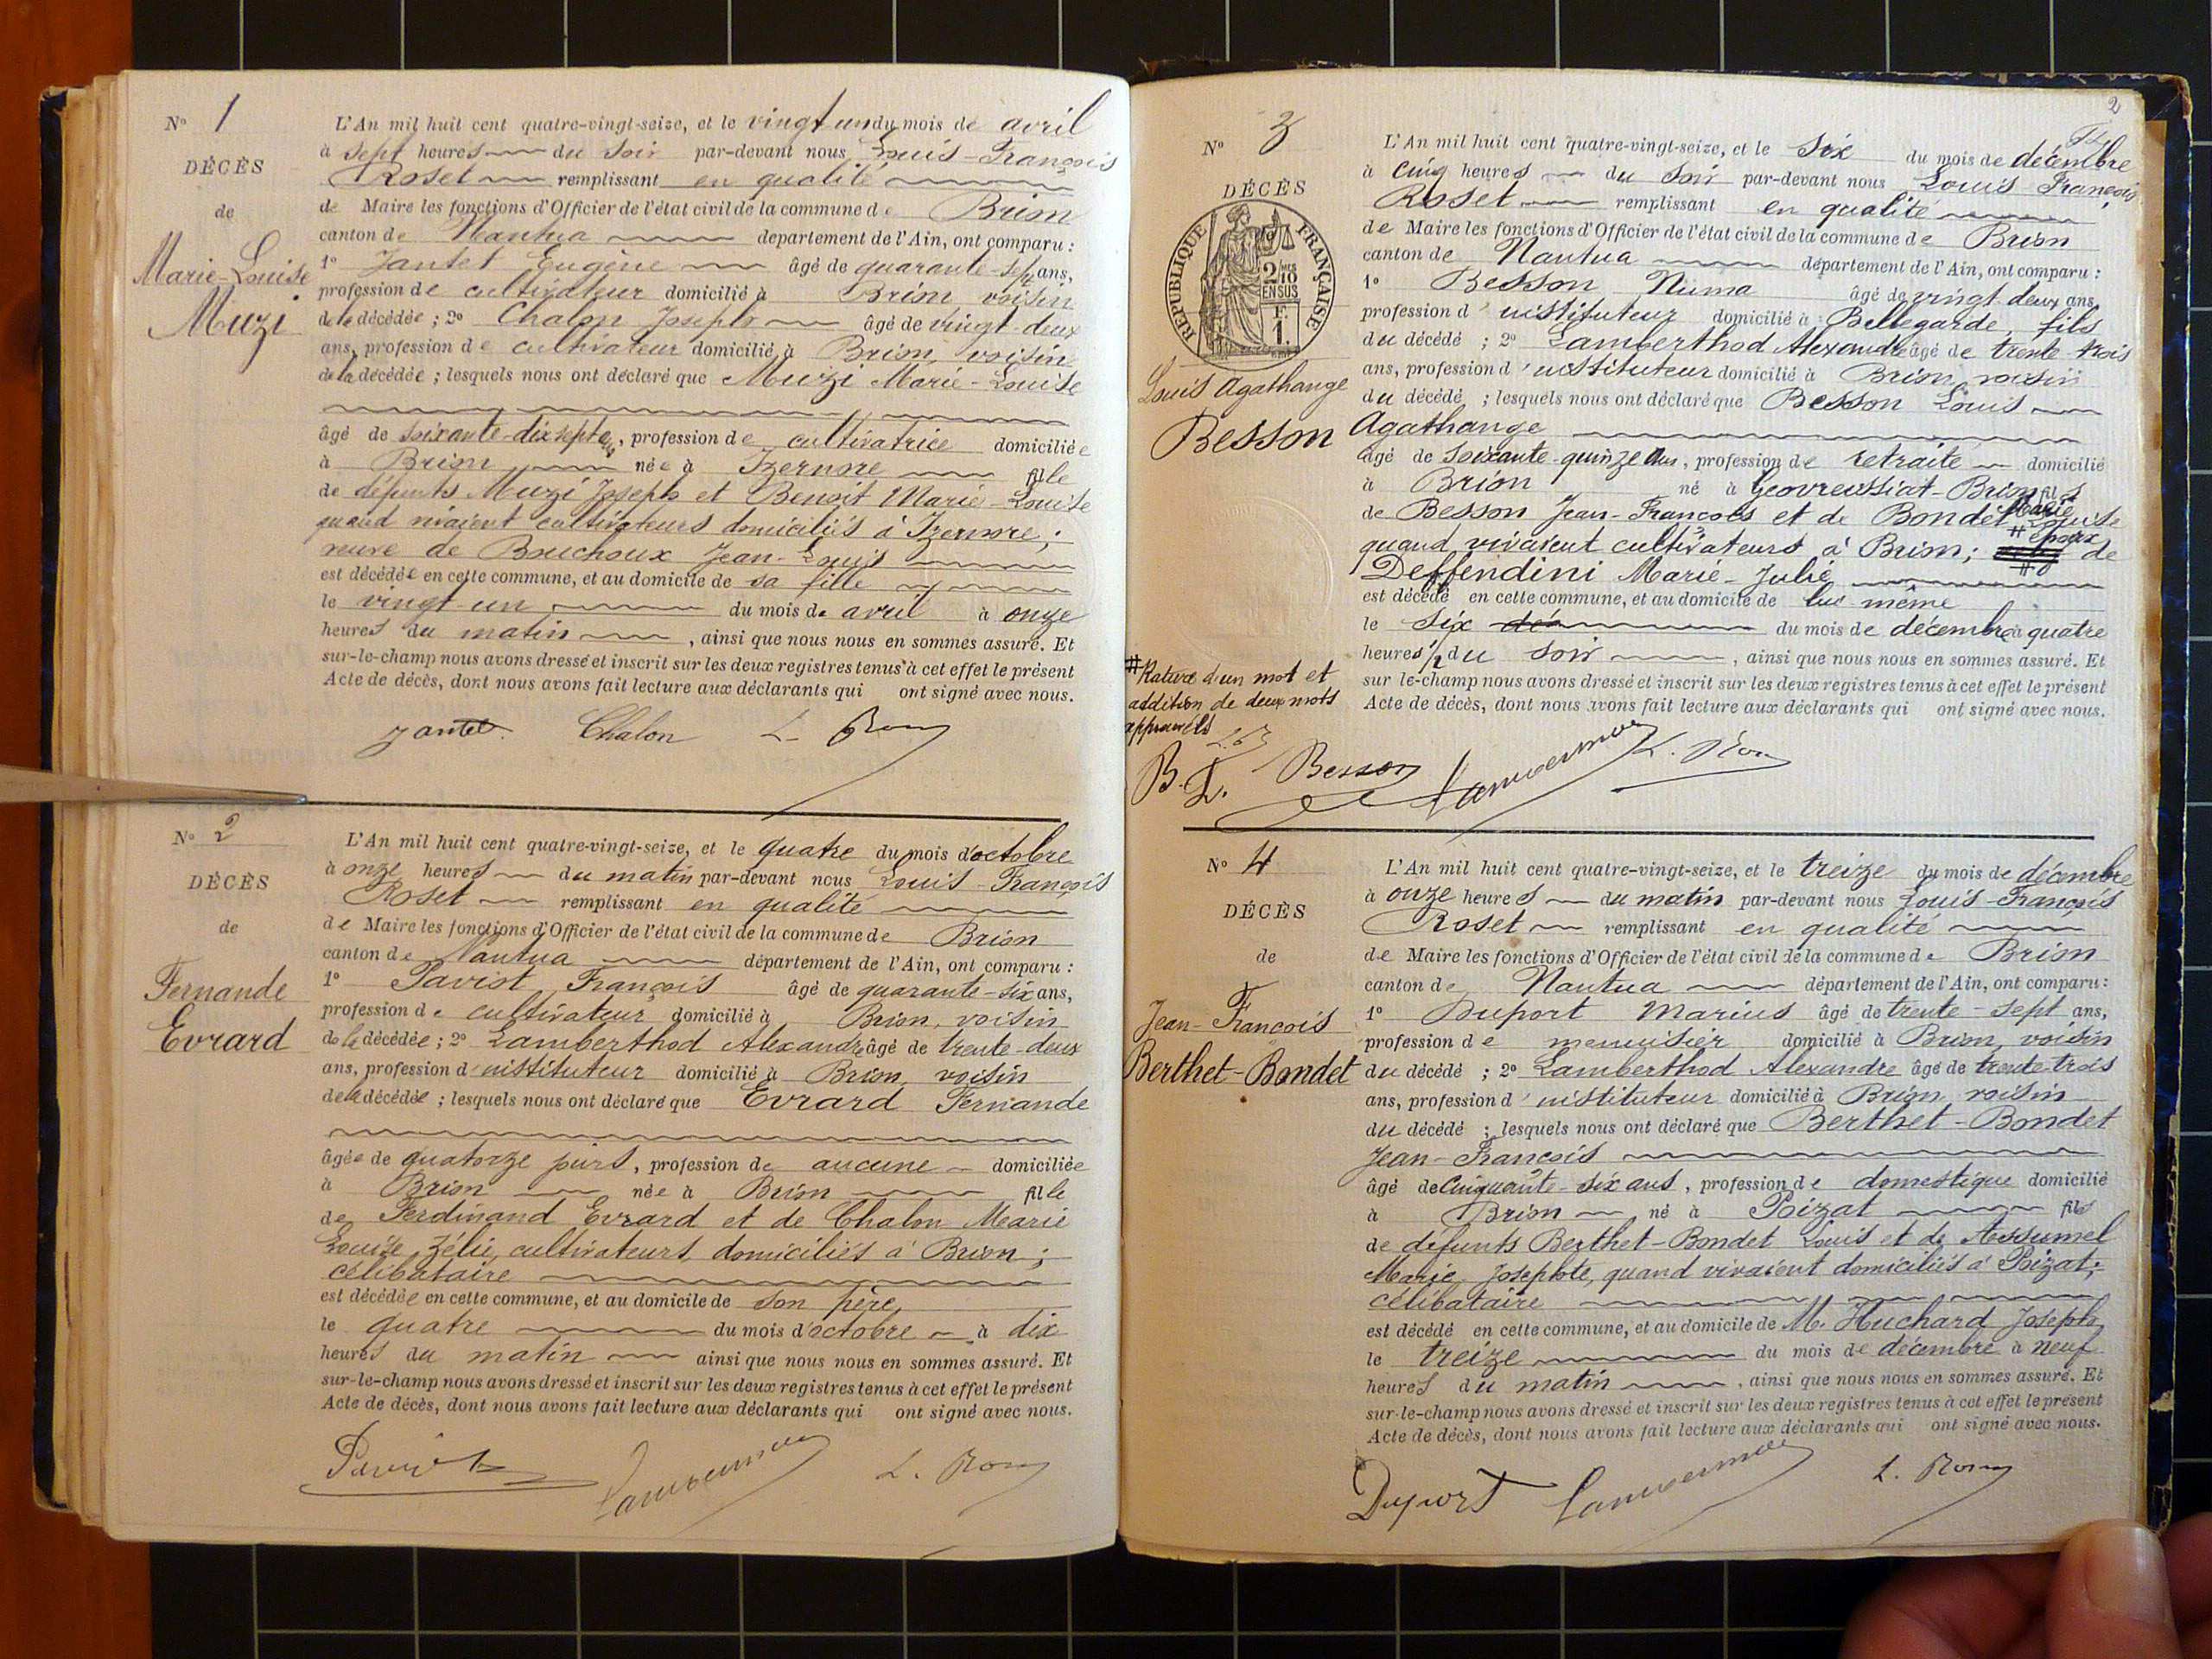 N° 1
DÉCÈS
de
Marie-Louise
Muzi
L'An mil huit cent quatre-vingt-seize, et le vingt un du mois de avril
à sept heures du soir par-devant nous Louis-François
Roset remplissant en qualité
de Maire les fonctions d'Officier de l'état civil de la commune de Brion
canton de Nantua département de l'Ain, ont comparu :
1° Jantet Eugène âgé de quarante-sept ans,
profession de cultivateur domicilié à Brion voisin
de la décédée ; 2° Chalon Joseph âgé de vingt-deux
ans, profession de cultivateur domicilié à Brion, voisin
de la décédée ; lesquels nous ont déclaré que Muzi Marie-Louise
âgé de soixante-dix sept ans, profession de cultivatrice domiciliée
à Brion née à Izernore fille
de défunts Muzi Joseph et Benoit Marie-Louise
quand vivaient cultivateurs domiciliés à Izernore ;
veuve de Bouchoux Jean-Louis
est décédée en cette commune, et au domicile de sa fille
le vingt-un du mois de avril à onze
heures du matin, ainsi que nous nous en sommes assuré. Et
sur-le-champ nous avons dressé et inscrit sur les deux registres tenus à cet effet le présent
Acte de décès, dont nous avons fait lecture aux déclarants qui ont signé avec nous.
Jantet Chalon L. Roset
N° 2
DÉCÈS
de
Fernande
Evrard
L'An mil huit cent quatre-vingt-seize, et le quatre du mois d'octobre
à onze heures du matin par-devant nous Louis-François
Roset remplissant en qualité
de Maire les fonctions d'Officier de l'état civil de la commune de Brion
canton de Nantua département de l'Ain, ont comparu :
1° Paviot François âgé de quarante-six ans,
profession de cultivateur domicilié à Brion, voisin
de la décédée ; 2° Lamberthod Alexandre âgé de trente-deux
ans, profession d'instituteur domicilié à Brion, voisin
de la décédée ; lesquels nous ont déclaré que Evrard Fernande
âgée de quatorze jours, profession de aucune domiciliée
à Brion née à Brion fille
de Ferdinand Evrard et de Chalon Marie
Louise Zélie, cultivateurs domiciliés à Brion ;
célibataire
est décédée en cette commune, et au domicile de son père,
le quatre du mois d'octobre à dix
heures du matin ainsi que nous nous en sommes assuré. Et
sur-le-champ nous avons dressé et inscrit sur les deux registres tenus à cet effet le présent
Acte de décès, dont nous avons fait lecture aux déclarants qui ont signé avec nous.
Paviot L. Roset
2
N° 3
DÉCÈS
RÉPUBLIQUE FRANÇAISE
2/10
EN SUS
F.
1.
Louis Agathange
Besson
L'An mil huit cent quatre-vingt-seize, et le six du mois de décembre
à cinq heures du soir par-devant nous Louis François
Roset remplissant en qualité
de Maire les fonctions d'Officier de l'état civil de la commune de Brion
canton de Nantua département de l'Ain, ont comparu :
1° Besson Numa âgé de vingt-deux ans,
profession d'instituteur domicilié à Bellegarde, fils
du décédé ; 2° Lamberthod Alexandre âgé de trente-trois
ans, profession d'instituteur domicilié à Brion, voisin
du décédé ; lesquels nous ont déclaré que Besson Louis
Agathange
âgé de soixante-quinze ans, profession de retraité domicilié
à Brion né à Géovreissiat-Brion fils
de Besson Jean-François et de Bondet Marie Louise
quand vivaient cultivateurs à Brion ; # époux de
Deffendini Marie-Julie
est décédé en cette commune, et au domicile de lui même
le six du mois de décembre à quatre
heures 1/2 du soir, ainsi que nous nous en sommes assuré. Et
sur-le-champ nous avons dressé et inscrit sur les deux registres tenus à cet effet le présent
Acte de décès, dont nous avons fait lecture aux déclarants qui ont signé avec nous.
# Rature d'un mot et
addition de deux mots
approuvés
B. L. Besson L. Roset
N° 4
DÉCÈS
de
Jean-François
Berthet-Bondet
L'An mil huit cent quatre-vingt-seize, et le treize du mois de décembre
à onze heures du matin par-devant nous Louis-François
Roset remplissant en qualité
de Maire les fonctions d'Officier de l'état civil de la commune de Brion
canton de Nantua département de l'Ain, ont comparu :
1° Duport Marius âgé de trente-sept ans,
profession de menuisier domicilié à Brion, voisin
du décédé ; 2° Lamberthod Alexandre âgé de trente-trois
ans, profession d'instituteur domicilié à Brion, voisin
du décédé ; lesquels nous ont déclaré que Berthet-Bondet
Jean-François
âgé de cinquante-six ans, profession de domestique domicilié
à Brion né à Poizat fils
de défunts Berthet-Bondet Louis et de Assumel
Marie Josephte, quand vivaient domiciliés à Poizat ;
célibataire
est décédé en cette commune, et au domicile de M. Huchard Joseph
le treize du mois de décembre à neuf
heures du matin, ainsi que nous nous en sommes assuré. Et
sur-le-champ nous avons dressé et inscrit sur les deux registres tenus à cet effet le présent
Acte de décès, dont nous avons fait lecture aux déclarants qui ont signé avec nous.
Duport L. Roset